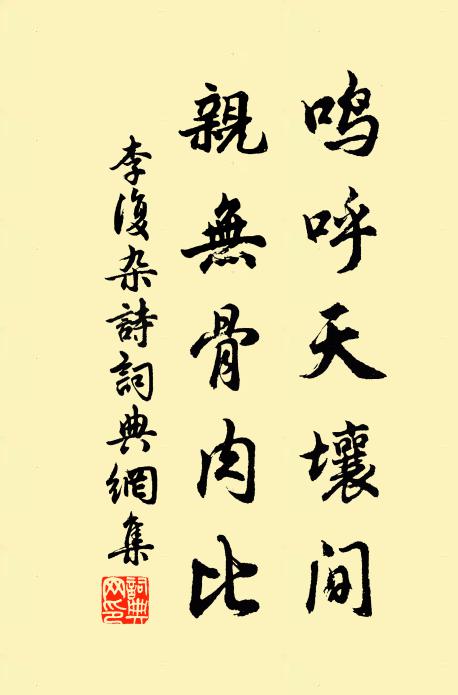 鳴呼天壤間
親無骨肉比
李復杂詩詞典網集
詞典
网印